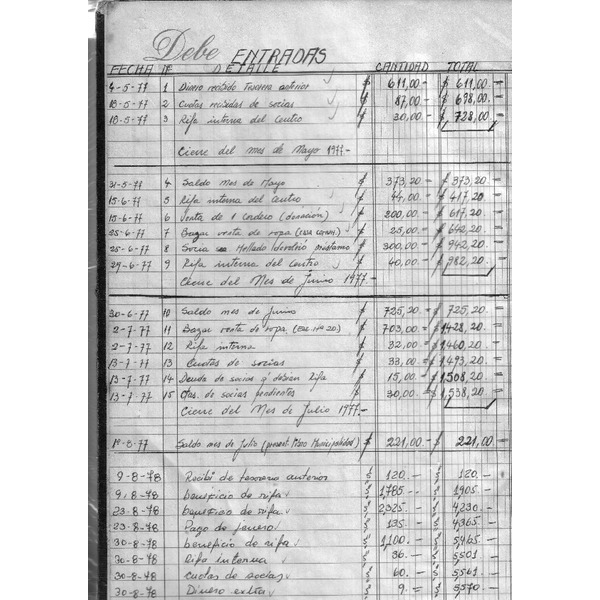 Debe ENTRADAS
FECHA Nº DETALLE CANTIDAD TOTAL
4-5-77 1 Dinero recibido Tesorera anterior $ 611,00- $ 611,00.-
18-5-77 2 Cuotas recibidas de socias $ 87,00- $ 698,00.-
18-5-77 3 Rifa interna del Centro $ 30,00- $ 728,00-
Cierre del mes de Mayo 1977-
31-5-77 4 Saldo mes de Mayo $ 373,20- $ 373,20-
15-6-77 5 Rifa interna del Centro $ 44,00- $ 417,20-
15-6-77 6 Venta de 1 Cordero (donación) $ 200,00- $ 617,20
25-6-77 7 Bazar venta de ropa $ 25,00- $ 642,20
25-6-77 8 Socia Mellado préstamo $ 300,00- $ 942,20
29-6-77 9 Rifa interna del Centro $ 40,00- $ 982,20
Cierre del Mes de Junio 1977.-
30-6-77 10 Saldo mes de Junio $ 725,20- $ 725,20
2-7-77 11 Bazar venta de ropa. $ 703,00- $ 1428,20-
2-7-77 12 Rifa interna $ 32,00- $ 1.460,20-
13-7-77 13 Cuotas de socias $ 33,00- $ 1.493,20-
13-7-77 14 Deuda de socias q' debían Rifa $ 15,00- $ 1.508,20-
13-7-77 15 Ctas. de socias pendientes $ 30,00- $ 1,538,20-
Cierre del Mes de Julio 1977.-
1º-8-77 Saldo mes de Julio $ 221,00- $ 221,00-
9-8-78 Recibí de tesorera anterior $ 120.- $ 120.-
9-8-78 beneficio de rifa $ 1,785.- $ 1905.-
23-8-78 beneficio de rifa $ 2325.- $ 4,230.-
23-8-78 Pago de género $ 135.- $ 4,365.-
30-8-78 beneficio de rifa $ 1,100.- $ 5,465.-
30-8-78 Rifa interna $ 36.- $ 5,501.-
30-8-78 Cuotas de socias $ 60.- $ 5,561.-
30-8-78 Dinero extra $ 9.= $ 5,570.-